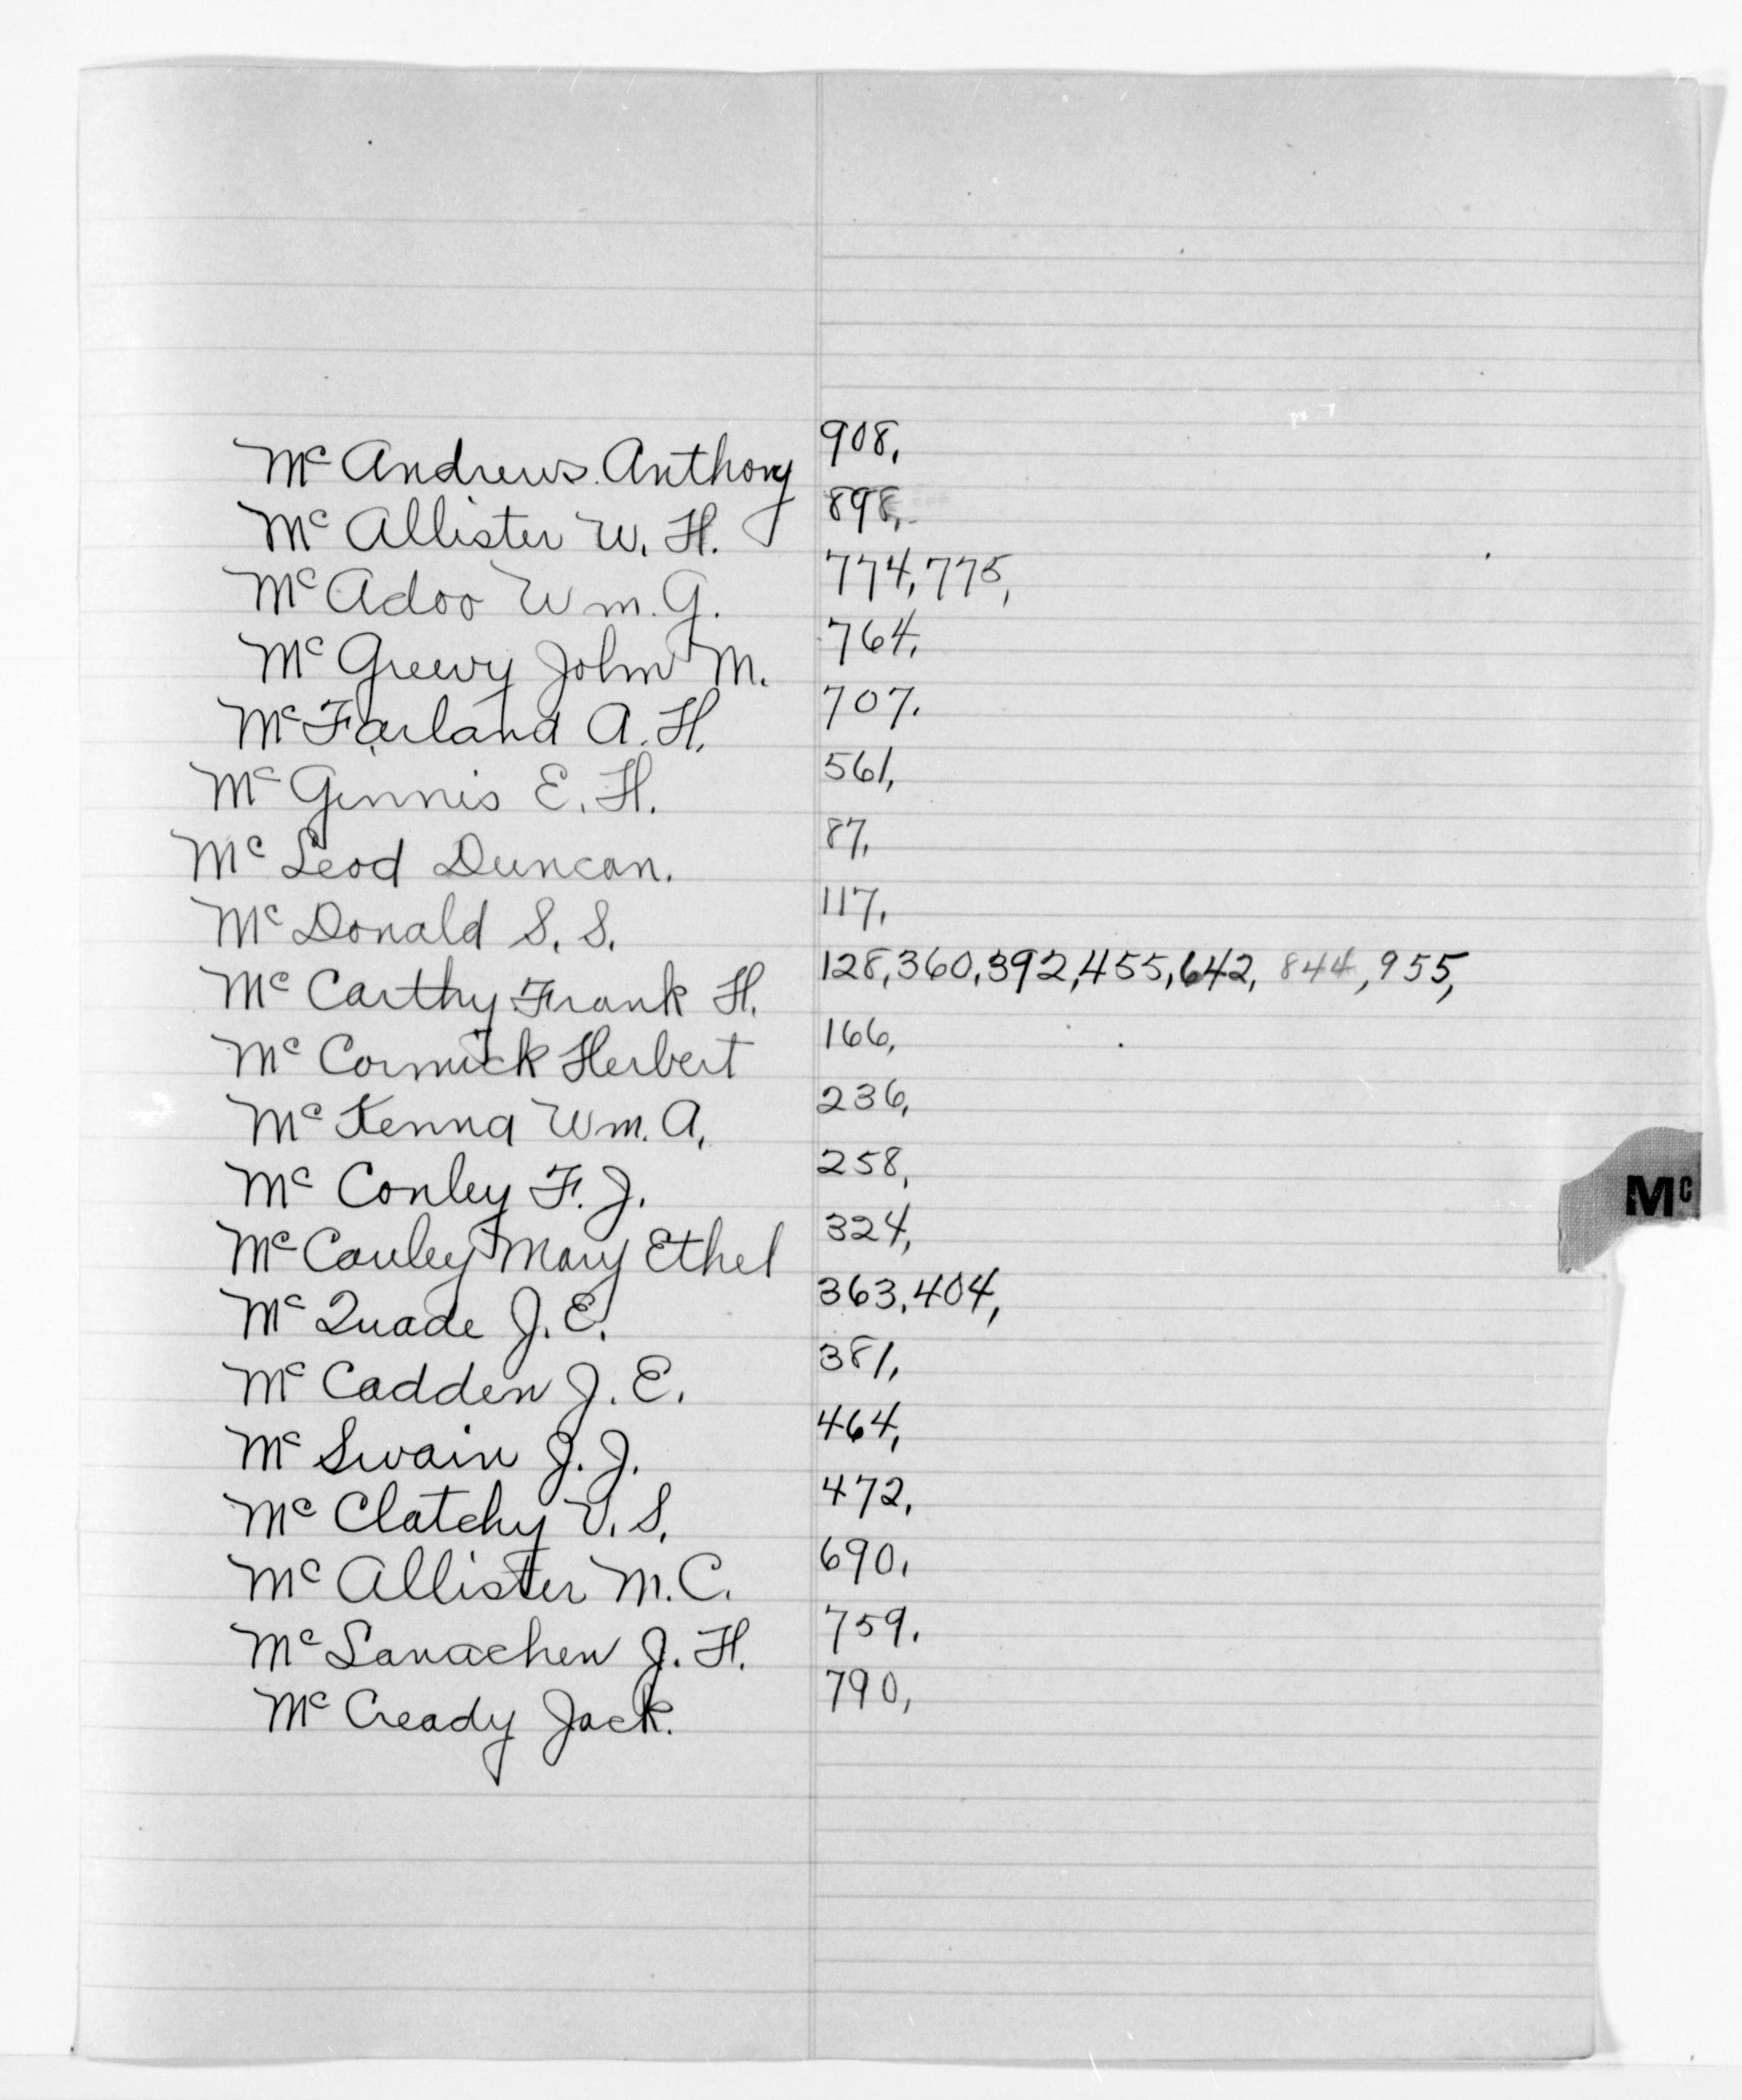 Mc Andrews Anthony 908,
Mc Allister W. H. 898,
Mc Adoo Wm. G. 774, 775,
Mc Greevy John M. 764,
Mc Farland A. H. 707.
Mc Ginnis E. H. 561,
Mc Leod Duncan. 87,
Mc Donald S. S. 117,
Mc Carthy Frank H. 128, 360, 392, 455, 642, 844, 955,
Mc Cormick Herbert 166,
Mc Kenna Wm. A. 236,
Mc Conley F. J. 258,
Mc Cauley Mary Ethel 324,
Mc Quade J. E. 363, 404,
Mc Cadden J. E. 381,
Mc Swain J. J. 464,
Mc Clatchy V. S. 472,
Mc Allister M. C. 690,
Mc Lanachen J. H. 759.
Mc Cready Jack. 790,
Mc